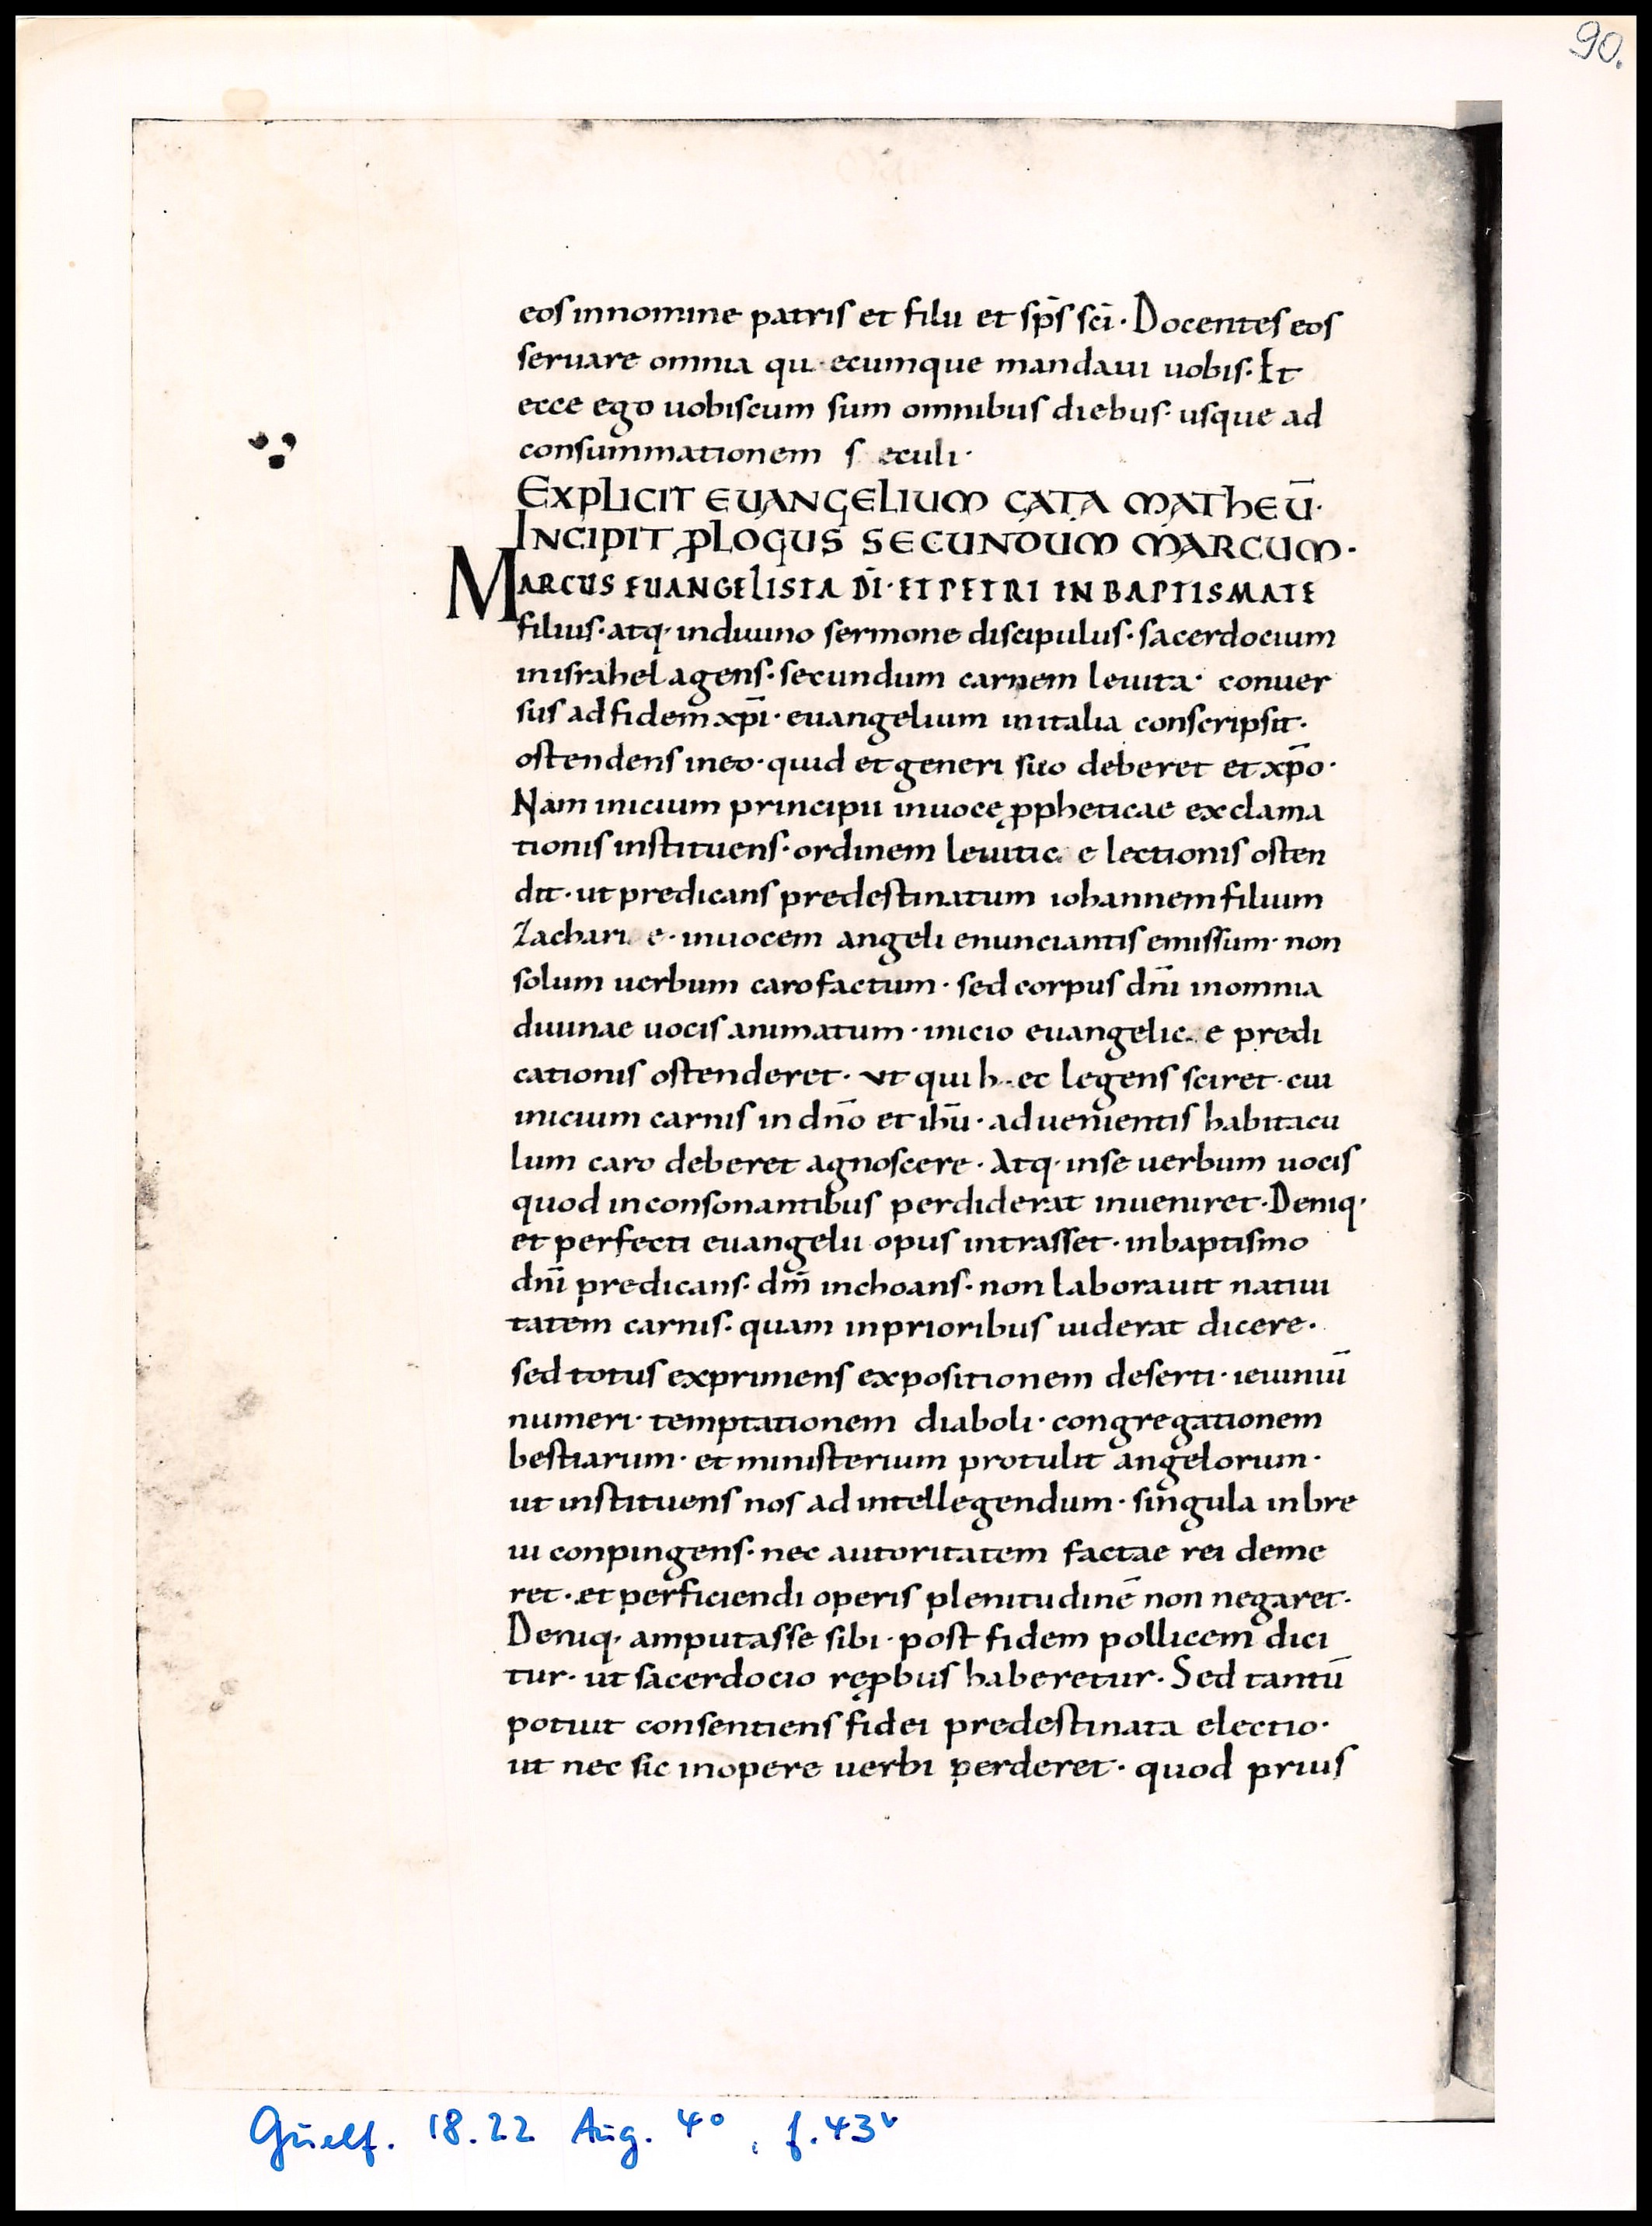 90.
eos innomine patris et filii et sp̄s sc̄i· Docentes eos
seruare omnia qu ecumque mandaui uobis· Et
ecce ego uobiscum sum omnibus diebus· usque ad
consummationem s eculi·
EXPLICIT EUANGELIUM CATA MATHEŪ·
INCIPIT ꝓLOGUS SECUNDUM MARCUM·
MARCUS EUANGELISTA D̄I· ET PETRI IN BAPTISMATE
filius· atq· indiuino sermone discipulus· sacerdocium
inisrahel agens· secundum carnem leuita· conuer
sus ad fidem xp̄i· euangelium initalia conscripsit·
ostendens ineo· quid et generi suo deberet et xp̄o·
Nam inicium principii inuoce ꝓpheticae exclama
tionis instituens· ordinem leuitic e lectionis osten
dit· ut predicans predestinatum iohannem filium
Zachari e· inuocem angeli enunciantis emissum· non
solum uerbum caro factum· sed corpus dn̄i inomnia
diuinae uocis animatum· inicio euangelic e predi
cationis ostenderet· ut qui h ec legens sciret· cui
inicium carnis in dn̄o et ih̄u· aduenientis habitacu
lum caro deberet agnoscere· Atq· inse uerbum uocis
quod inconsonantibus perdiderat inueniret· Deniq·
et perfecti euangelii opus intrasset· inbaptismo
dn̄i predicans· dm̄ inchoans· non laborauit natiui
tatem carnis· quam inprioribus uiderat dicere·
sed totus exprimens expositionem deserti· ieiuniū
numeri· temptationem diaboli· congregationem
bestiarum· et ministerium protulit angelorum·
ut instituens nos ad intellegendum· singula inbre
ui conpingens· nec autoritatem factae rei deme
ret· et perficiendi operis plenitudinē non negaret·
Deniq· amputasse sibi· post fidem pollicem dici
tur· ut sacerdocio reꝓbus haberetur· Sed tantū
potuit consentiens fidei predestinata electio·
ut nec sic inopere uerbi perderet· quod prius
Guelf. 18.22 Aug. 4°, f.43v